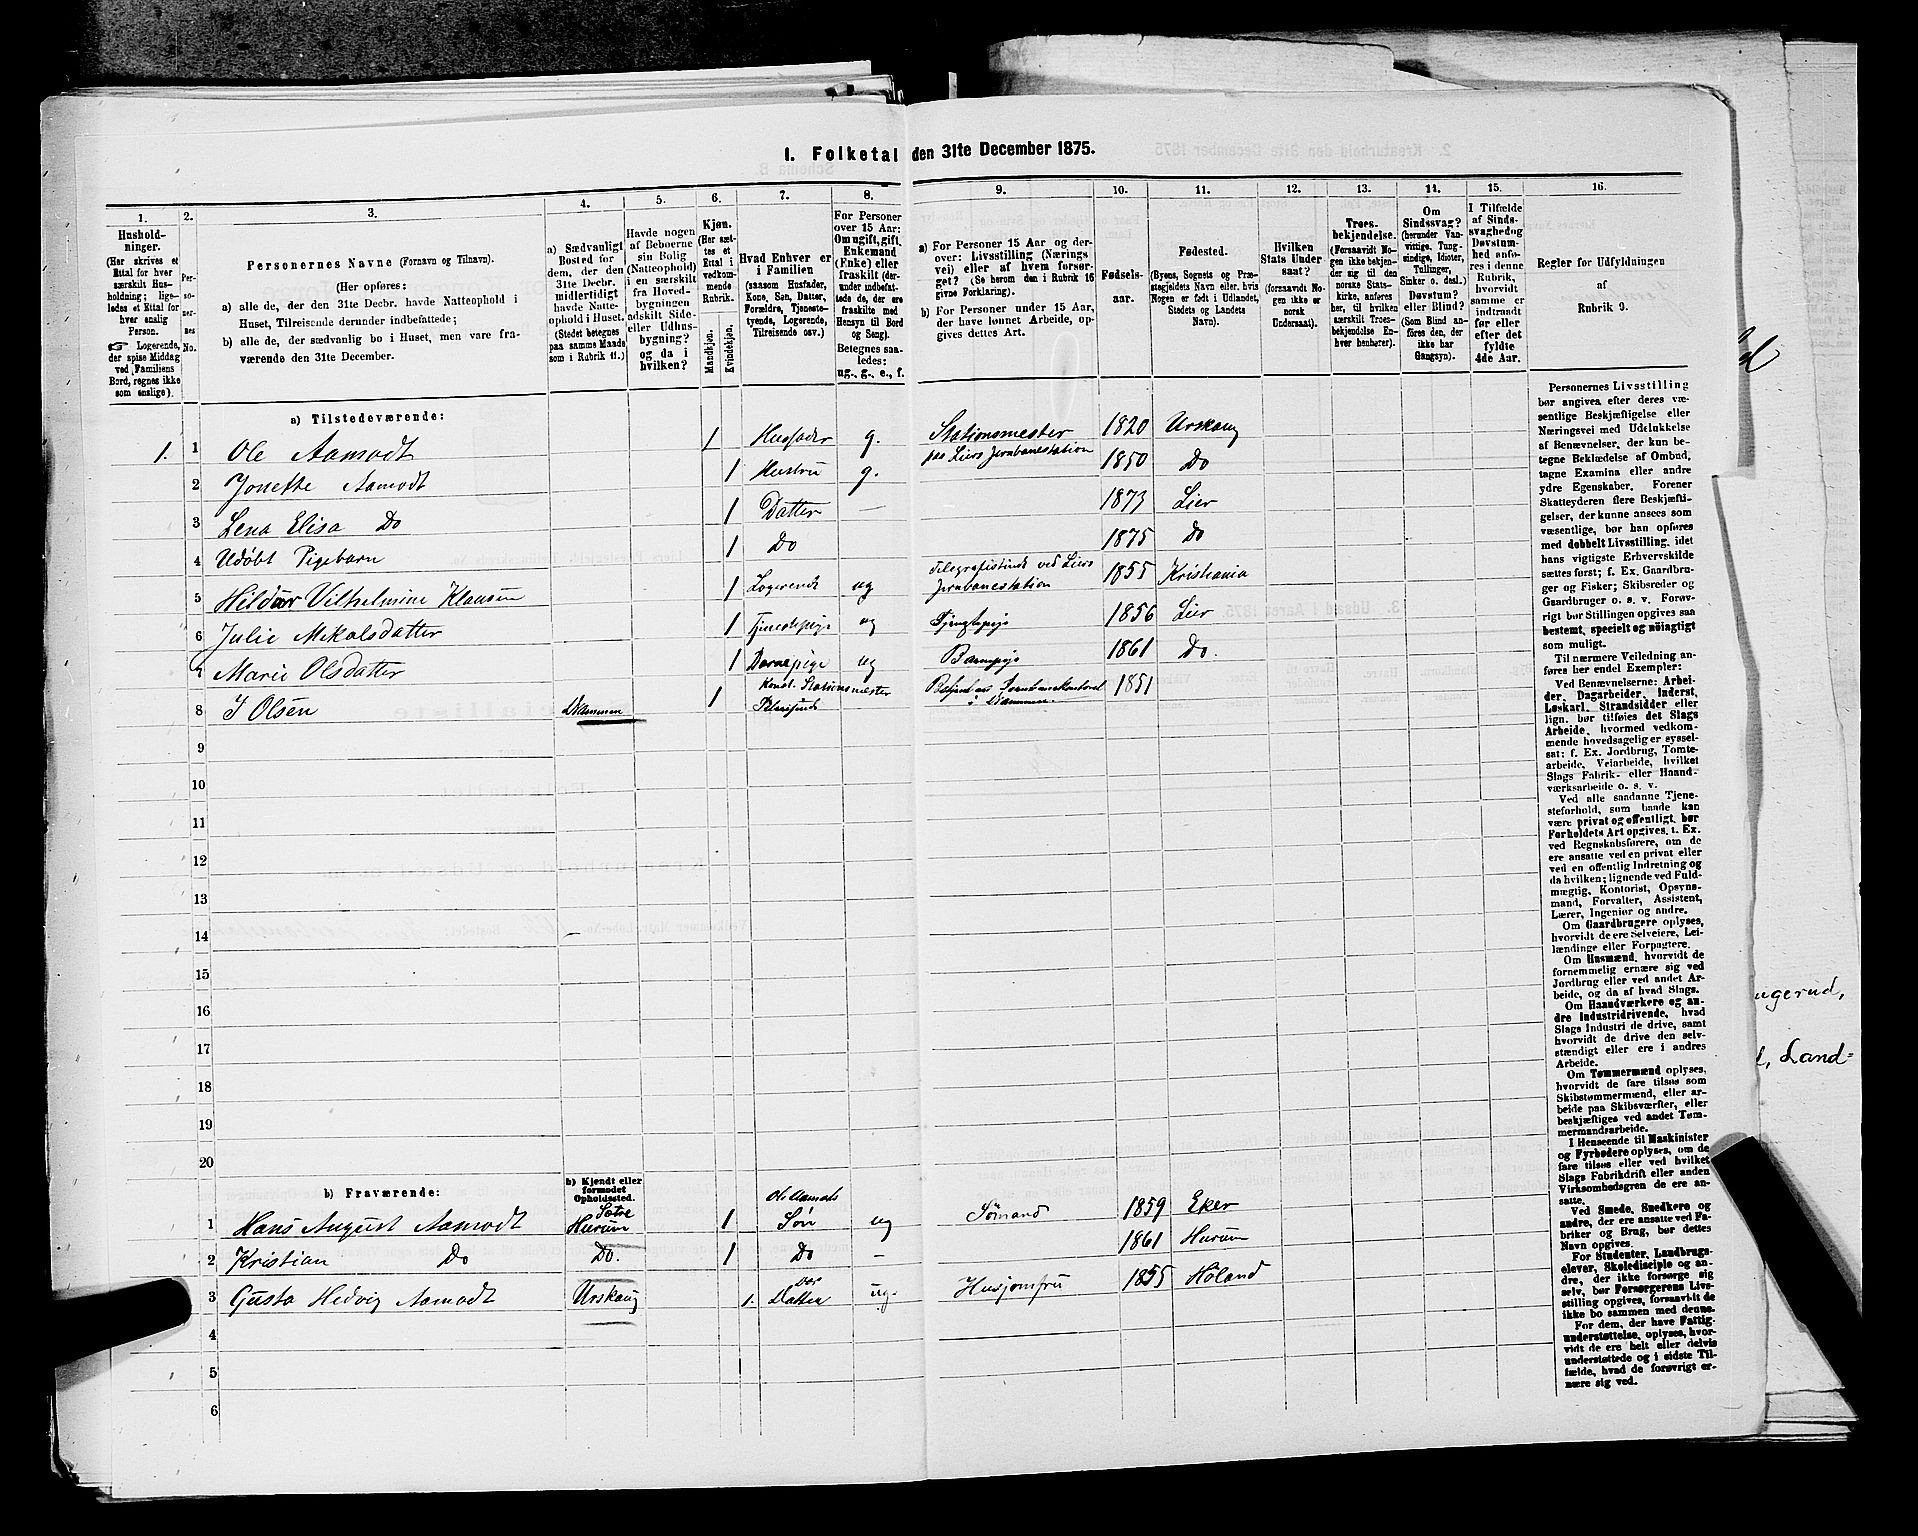 1. Folketal den 31te December 1875.
1. 2. 3. 4. 5. 6. 7. 8. 9. 10. 11. 12. 13. 14. 15. 16.
Hushold-
ninger.
(Her skrives et
Ettal for hver
særskilt Hus-
holdning; lige-
ledes et Ettal for
hver enslig
Person.
☞ Logerende,
der spise Middag
ved Familiens
Bord, regnes ikke
som enslige).
Per-
so-
ner-
nes
No.
Personernes Navne (Fornavn og Tilnavn).
(Her opføres:
a) alle de, der den 31te Decbr. havde Natteophold i
Huset, Tilreisende derunder indbefattede;
b) alle de, der sædvanlig bo i Huset, men vare fra-
værende den 31te December.
a) Sædvanligt
Bosted for
dem, der den
31te Decbr.
midlertidigt
havde Natte-
ophold i Huset.
(Stedet betegnes
paa samme Maade
som i Rubrik 11.)
Havde nogen
af Beboerne
sin Bolig
(Natteophold)
i en særskilt
fra Hoved-
bygningen
adskilt Side-
eller Udhus-
bygning?
og da i
hvilken?
Kjøn.
(Her sæt-
tes et
Ettal i
vedkom-
mende
Rubrik.
Mandkjøn.
Kvindekjøn.
Hvad Enhver er
i Familien
(saasom Husfader,
Kone, Søn, Datter,
Forældre, Tjeneste-
tyende, Logerende,
Tilreisende osv.)
For Personer
over 15 Aar:
Om ugift, gift,
Enkemand
(Enke) eller
fraskilt (der-
under indbefat-
tede de, der ere
fraskilte med
Hensyn til Bord
og Seng).
Betegnes saa-
ledes:
ug., g., e., f.
a) For Personer 15 Aar og der-
over: Livsstilling (Nærings
vei) eller af hvem forsør-
get? (Se herom den i Rubrik 16
givne Forklaring).
b) For Personer under 15 Aar,
der have lønnet Arbeide, op-
gives dettes Art.
Fødsels-
aar.
Fødested.
(Byens, Sognets og Præ-
stegjeldets Navn eller, hvis
Nogen er født i Udlandet,
Stedets og Landets
Navn).
Hvilken
Stats Under
saat?
(forsaavidt No
gen ikke er
norsk
Undersaat).
Troes-
bekjendelse.
(Forsaavidt No-
gen ikke bekjen-
der sig til den
norske Stats-
kirke, anføres
her, til hvilken
særskilt Troes-
bekjendelse En-
hver henhører).
Om
Sindssvag?
(herunder Van-
vittige, Tung-
sindige, Idioter,
Tullinger,
Sinker o. desl.)
Døvstum?
eller Blind?
(Som Blind an-
føres den, der
ikke har
Gangsyn).
I Tilfælde
af Sinds-
svaghed og
Døvstum-
hed anfø-
res i denne
Rubrik,
hvorvidt
samme er
indtraadt
før eller
efter det
fyldte
4de Aar.
Regler for Udfyldningen
af
Rubrik 9.
a) Tilstedeværende:
1. 1 Ole Aamodt 1 Husfader g. Stationsmester paa Liers Jernbanestation 1820 Urskoug
2 Jonette Aamodt 1 Hustru g. 1850 Do
3 Lena Elisa Do 1 Datter — 1873 Lier
4 Udøbt Pigebarn 1 Do 1875 Do
5 Hildur Vilhelmine Klausen 1 Logerende ug Telegrafistinde ved Liers Jernbanestation 1855 Kristiania
6 Julie Nikolsdatter 1 Tjenestepige ug Tjenestepige 1856 Lier
7 Marie Olsdatter 1 Barnepige ug Barnepige 1861 Do.
8 J Olsen Drammen 1 Konst. Stationsmester Betjent Jernbanekontoret i Drammen. 1851
9
10
11
12
13
14
15
16
17
18
19
20
b) Fraværende:
b) Kjendt eller
formodet
Opholdssted.
1 Hans August Aamodt Sætre Hurum 1 Ole Aamodts Søn ug Sømand 1859 Eker
2 Kristian Do Do. 1 Do — 1861 Hurum
3 Gusta Hedvig Aamodt Urskoug 1. Dos Datter ug. Husjomfru 1855 Høland
4
5
6
Personernes Livsstilling
bør angives efter deres væ-
sentlige Beskjæftigelse eller
Næringsvei med Udelukkelse
af Benævnelser, der kun be-
tegne Beklædelse af Ombud,
tagne Examina eller andre
ydre Egenskaber. Forener
Skatteyderen flere Beskjæfti-
gelser, der kunne ansees som
væsentlige, bør han opføres
med dobbelt Livsstilling, idet
hans vigtigste Erhvervskilde
sættes først; f. Ex. Gaardbru-
ger og Fisker; Skibsreder og
Gaardbruger o. s. v. Forøv-
rigt bør Stillingen opgives saa
bestemt, specielt og nøiagtigt
som muligt.
Til nærmere Veiledning an-
føres her endel Exempler:
Ved Benævnelserne: Arbei-
der, Dagarbeider, Inderst,
Løskarl, Strandsidder eller
lign. bør tilføies det Slags
Arbeide, hvormed vedkom-
mende hovedsagelig er syssel-
sat; f. Ex. Jordbrug, Tomte-
arbeide, Veiarbeide, hvilket
Slags Fabrik- eller Haand-
værksarbeide o. s. v.
Ved alle saadanne Tjene-
steforhold, som baade kan
være privat og offentligt, bør
Forholdets Art opgives, t. Ex.
ved Regnskabsførere, om de
ere ansatte ved en privat eller
ved en offentlig Indretning og
da hvilken; lignende ved Fuld-
mægtig, Kontorist, Opsyns-
mand, Forvalter, Assistent,
Lærer, Ingeniør og andre.
Om Gaardbrugere oplyses,
hvorvidt de ere Selveiere, Lei-
lændinge eller Forpagtere.
Om Husmænd, hvorvidt de
fornemmelig ernære sig ved
Jordbrug eller ved andet Ar-
beide, og da af hvad Slags.
Om Haandværkere og an-
dre Industridrivende, hvad
Slags Industri de drive, samt
hvorvidt de drive den selv-
stændigt eller ere i andres
Arbeide.
Om Tømmermænd oplyses,
hvorvidt de fare tilsøs som
Skibstømmermænd, eller ar-
beide paa Skibsværfter, eller
beskjæftiges ved andet Tøm-
mermandsarbeide.
I Henseende til Maskinister
og Fyrbødere oplyses, om de
fare tilsøs eller ved hvilket
Slags Fabrikdrift eller anden
Virksomhedsgren de ere an-
satte.
Ved Smede, Snedkere og
andre, der ere ansatte ved Fa-
briker og Brug, bør dettes
Navn opgives.
For Studenter, Landbrugs-
elever, Skoledisciple og an-
dre, der ikke forsørge sig
selv, bør Forsørgerens Livs-
stilling opgives, forsaavidt de
ikke bo sammen med denne.
For dem, der have Fattig-
understøttelse, oplyses, hvor-
vidt de ere helt eller delvis
understøttede og i sidste Til-
fælde, hvad de forøvrigt er-
nære sig ved.
ugerud,
Land=